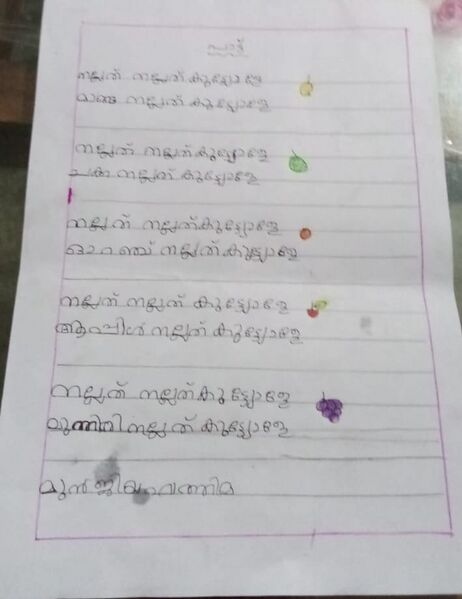 പാട്ട്
നല്ലത് നല്ലത് കുട്ട്യോളേ
മാങ്ങ നല്ലത് കുട്ട്യോളേ
നല്ലത് നല്ലത് കുട്ട്യോളേ
ചക്ക നല്ലത് കുട്ട്യോളേ
നല്ലത് നല്ലത് കുട്ട്യോളേ
ഓറഞ്ച് നല്ലത് കുട്ട്യോളേ
നല്ലത് നല്ലത് കുട്ട്യോളേ
ആപ്പിൾ നല്ലത് കുട്ട്യോളേ
നല്ലത് നല്ലത് കുട്ട്യോളേ
മുന്തിരി നല്ലത് കുട്ട്യോളേ